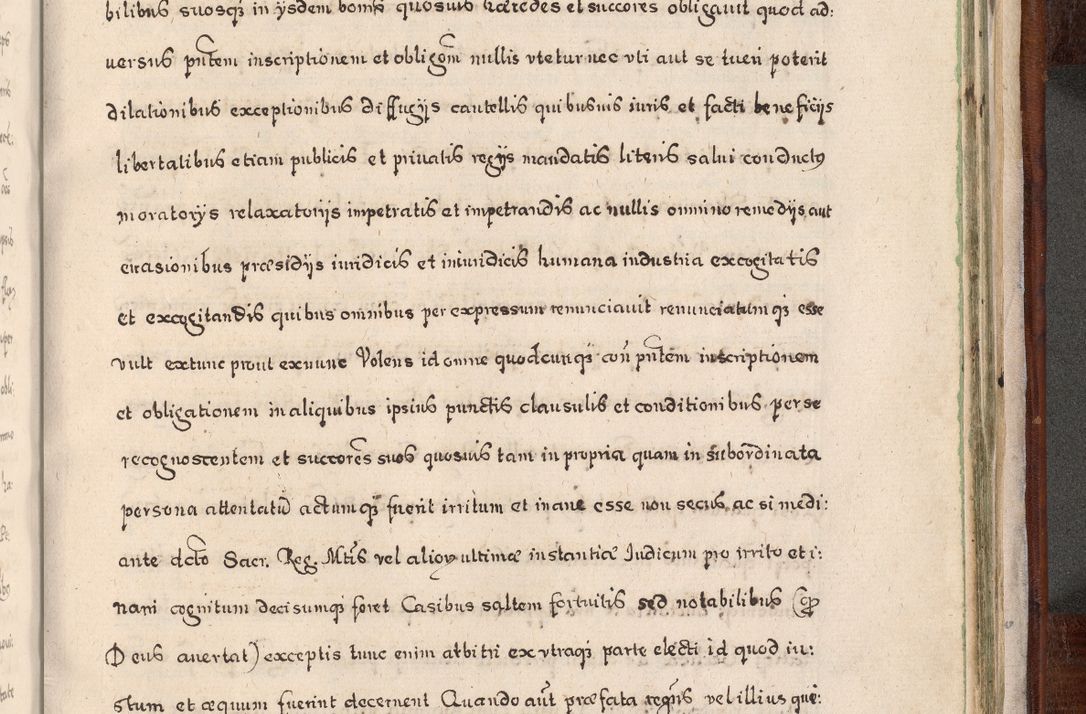 bilibus suosq3 in ysdem bonis quosuis hæredes et succores obligauit quod ad:
uersus pñtem inscriptionem et obligoñi nullis vtetur nec vti aut se tueri poterit
dilationibus exceptionibus diffugijs cautellis quibusuis iuris et facti beneficijs
libertatibus etiam publicis et priuatis regijs mandatis literis salui conductus
moratorys relaxatorijs impetratis et impetrandis ac nullis omnino remedijs aut
euasionibus præsidijs iuridicis et iniuridicis humana industria excogitatis
et excogitandis quibus omnibus per expressum renunciauit renunciatumq3 esse
vult extunc prout exnunc Volens id omne quodcunq3 coñ pñtem inscriptionem
et obligationem in aliquibus ipsius punctis clausulis et conditionibus per se
recognoscentem et succores suos quosuis tam in propria quam in subordinata
persona attentatũ actumq3 fuerit irritum et inane esse non secus ac si medi:
ante dcto Sacr. Reg. Mtis vel alioꝝ ultimæ instantiæ Iudicum pro irrito et i:
nani cognitum decisumq3 foret Casibus saltem fortuitis sed notabilibus (qp
Deus auertat) exceptis tunc enim arbitri ex vtraq3 parte electi id quod iu:
stum et æquum fuerint decernent Quando aũt præfata reqñs vel illius que: